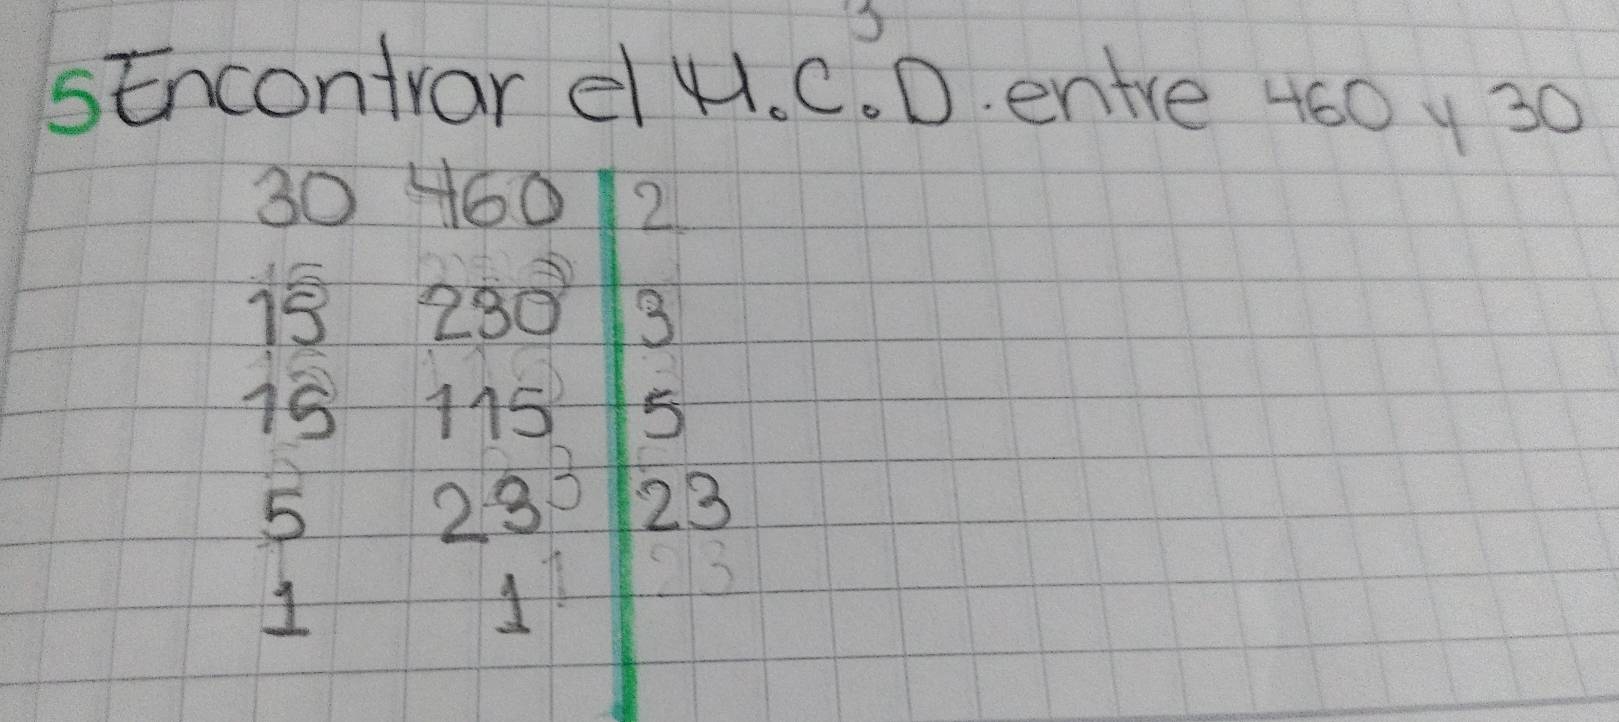 5 Encontrar el M.C.D. entre 460 y 30
30 460 2
15 230 3
15 115 5
5 23 23
1 1